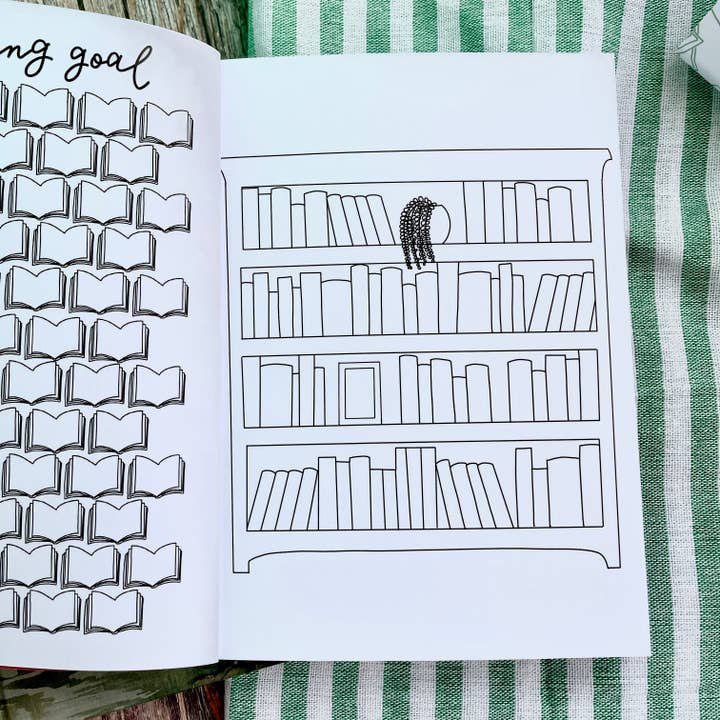 ng goal